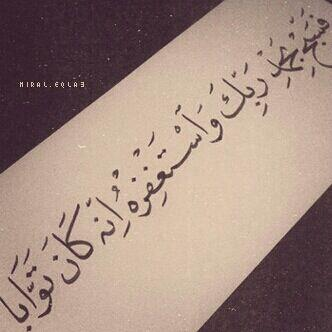 فسبح بحمد ربك واستغفره إنه كان توابا
MIRAL.EQLAB